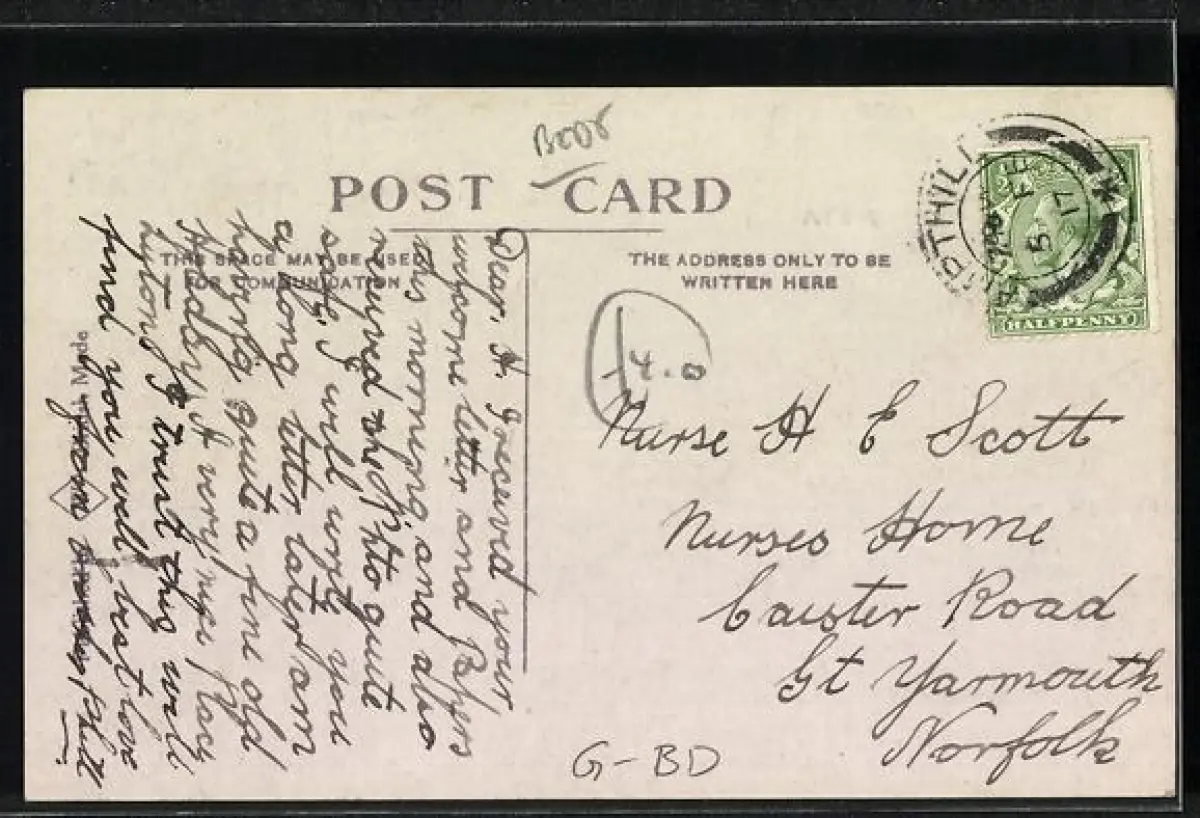 BEDS
POST CARD
THIS SPACE MAY BE USED
FOR COMMUNICATION
THE ADDRESS ONLY TO BE
WRITTEN HERE
AMPTHILL
FE
5
17
HALFPENNY
4.0
Nurse H E Scott
Nurses Home
Caister Road
Gt Yarmouth
Norfolk
G-BD
Dear. H. I received your
welcome letter and Papers
this morning and also
received the Photo quite
safe, I will write you
a long letter later am
having quite a fine old
A very nice place
I trust this will
find you well, best love
British Made